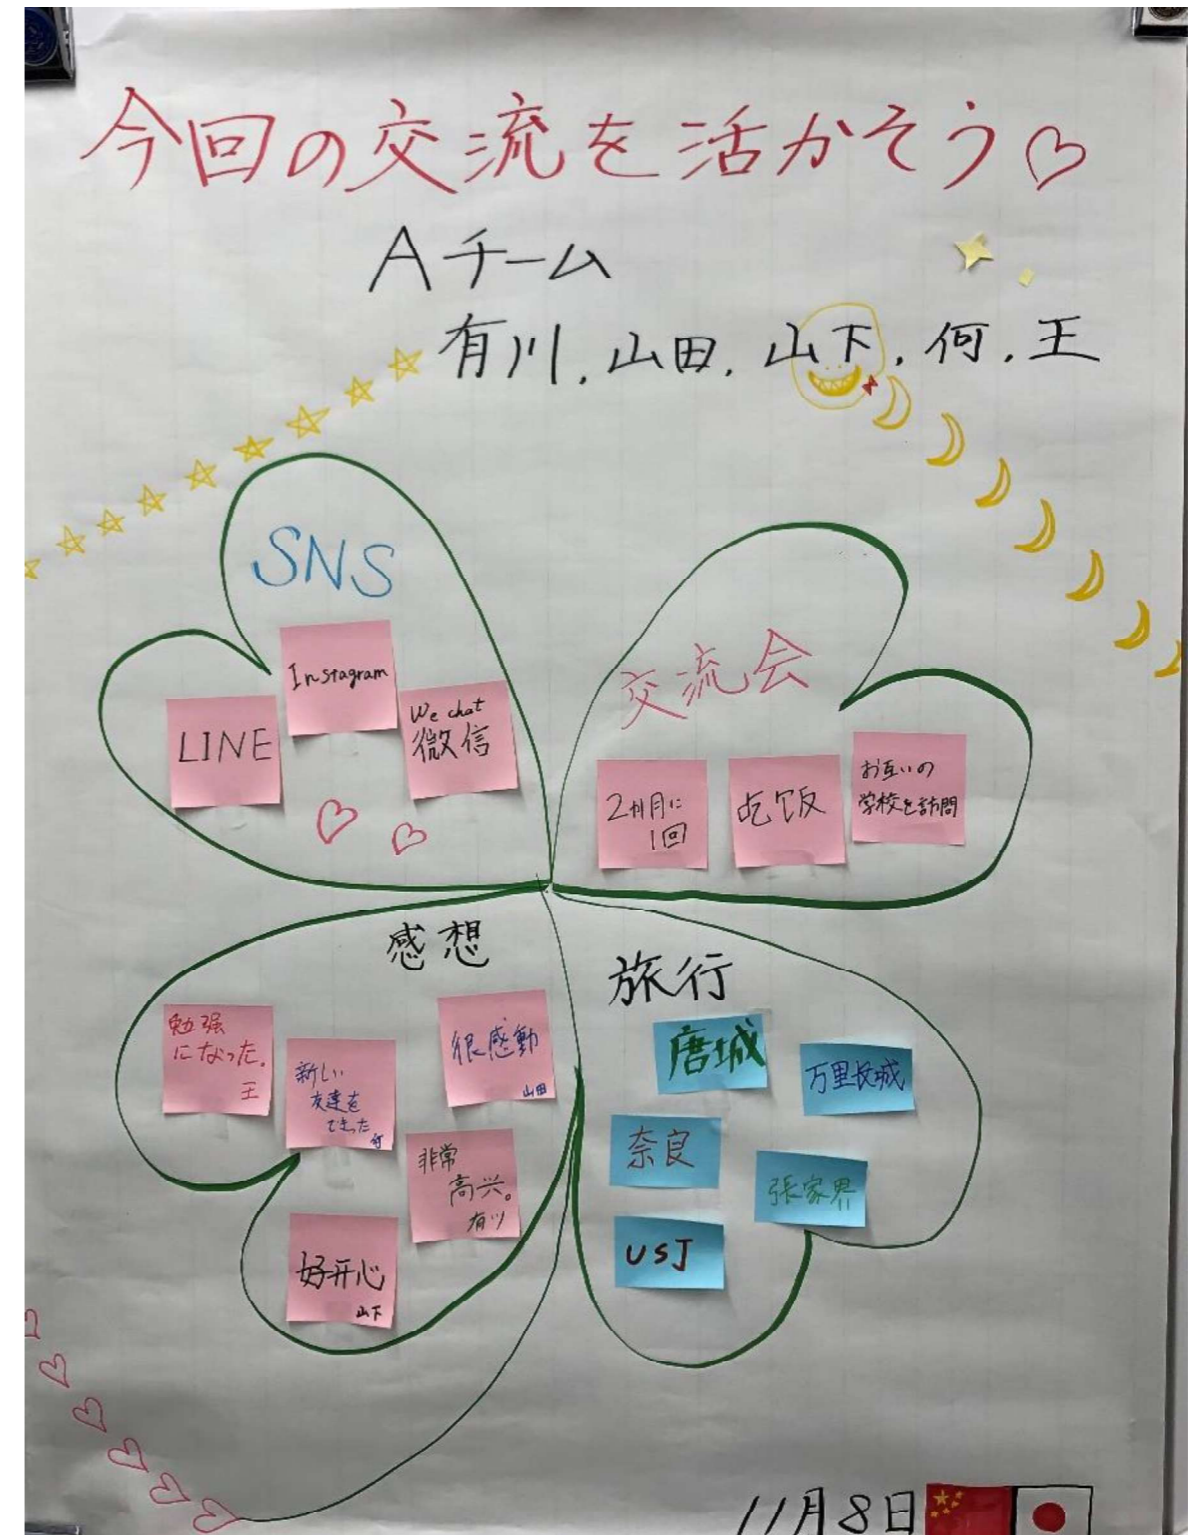 今回の交流を活かそう♡
Aチーム
有川, 山田, 山下, 何, 王
SNS
LINE
Instagram
We chat
微信
交流会
2か月に
1回
吃饭
お互いの
学校を訪問
感想
勉強
になった。
王
新しい
友達を
できった
何
很感動
山田
非常
高兴。
有川
好开心
山下
旅行
唐城
万里长城
奈良
張家界
USJ
11月8日